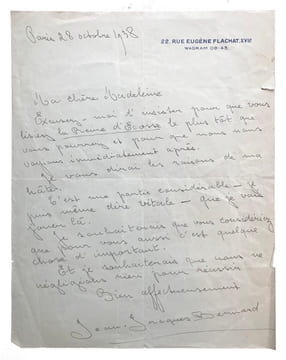 Paris 28 octobre 1938
22, RUE EUGÈNE FLACHAT, XVII
WAGRAM 08-43
Ma chère Madeleine
Excusez-moi d'insister pour que vous
lisiez la Reine d'Ecosse le plus tôt que
vous pourrez et pour que nous nous
voyions immédiatement après.
Je vous dirai les raisons de ma
hâte.
C'est une partie considérable - je
puis même dire vitale - que je vais
jouer là.
Je souhaiterais que vous considériez
que pour vous aussi c'est quelque
chose d'important.
Et je souhaiterais que nous ne
négligions rien pour réussir
Bien affectueusement
Jean-Jacques Bernard